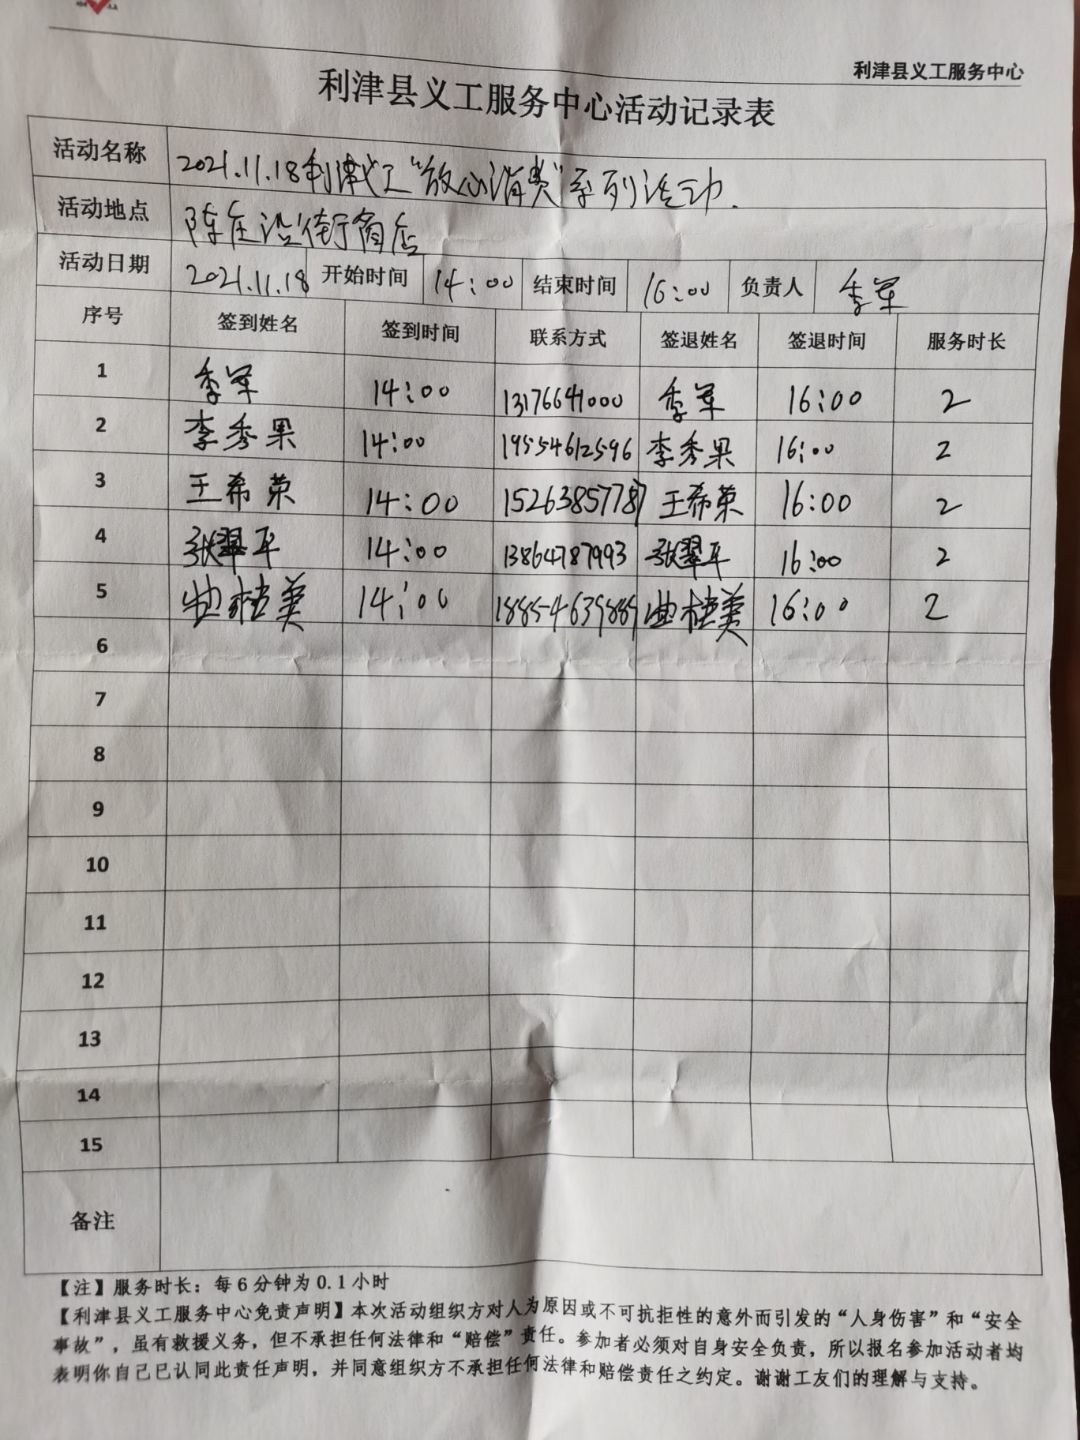 利津县义工服务中心
利津县义工服务中心活动记录表
活动名称 2021.11.18利津义工“放心消费”系列活动.
活动地点 陈庄沿街商店
活动日期 2021.11.18 开始时间 14:00 结束时间 16:00 负责人 季军
序号 签到姓名 签到时间 联系方式 签退姓名 签退时间 服务时长
1 季军 14:00 13176641000 季军 16:00 2
2 李秀果 14:00 19554612596 李秀果 16:00 2
3 王希荣 14:00 15263857787 王希荣 16:00 2
4 张翠平 14:00 13864787993 张翠平 16:00 2
5 曲桂美 14:00 18854639889 曲桂美 16:00 2
6
7
8
9
10
11
12
13
14
15
备注
【注】服务时长：每6分钟为0.1小时
【利津县义工服务中心免责声明】本次活动组织方对人为原因或不可抗拒性的意外而引发的“人身伤害”和“安全
事故”，虽有救援义务，但不承担任何法律和“赔偿”责任。参加者必须对自身安全负责，所以报名参加活动者均
表明你自己已认同此责任声明，并同意组织方不承担任何法律和赔偿责任之约定。谢谢工友们的理解与支持。